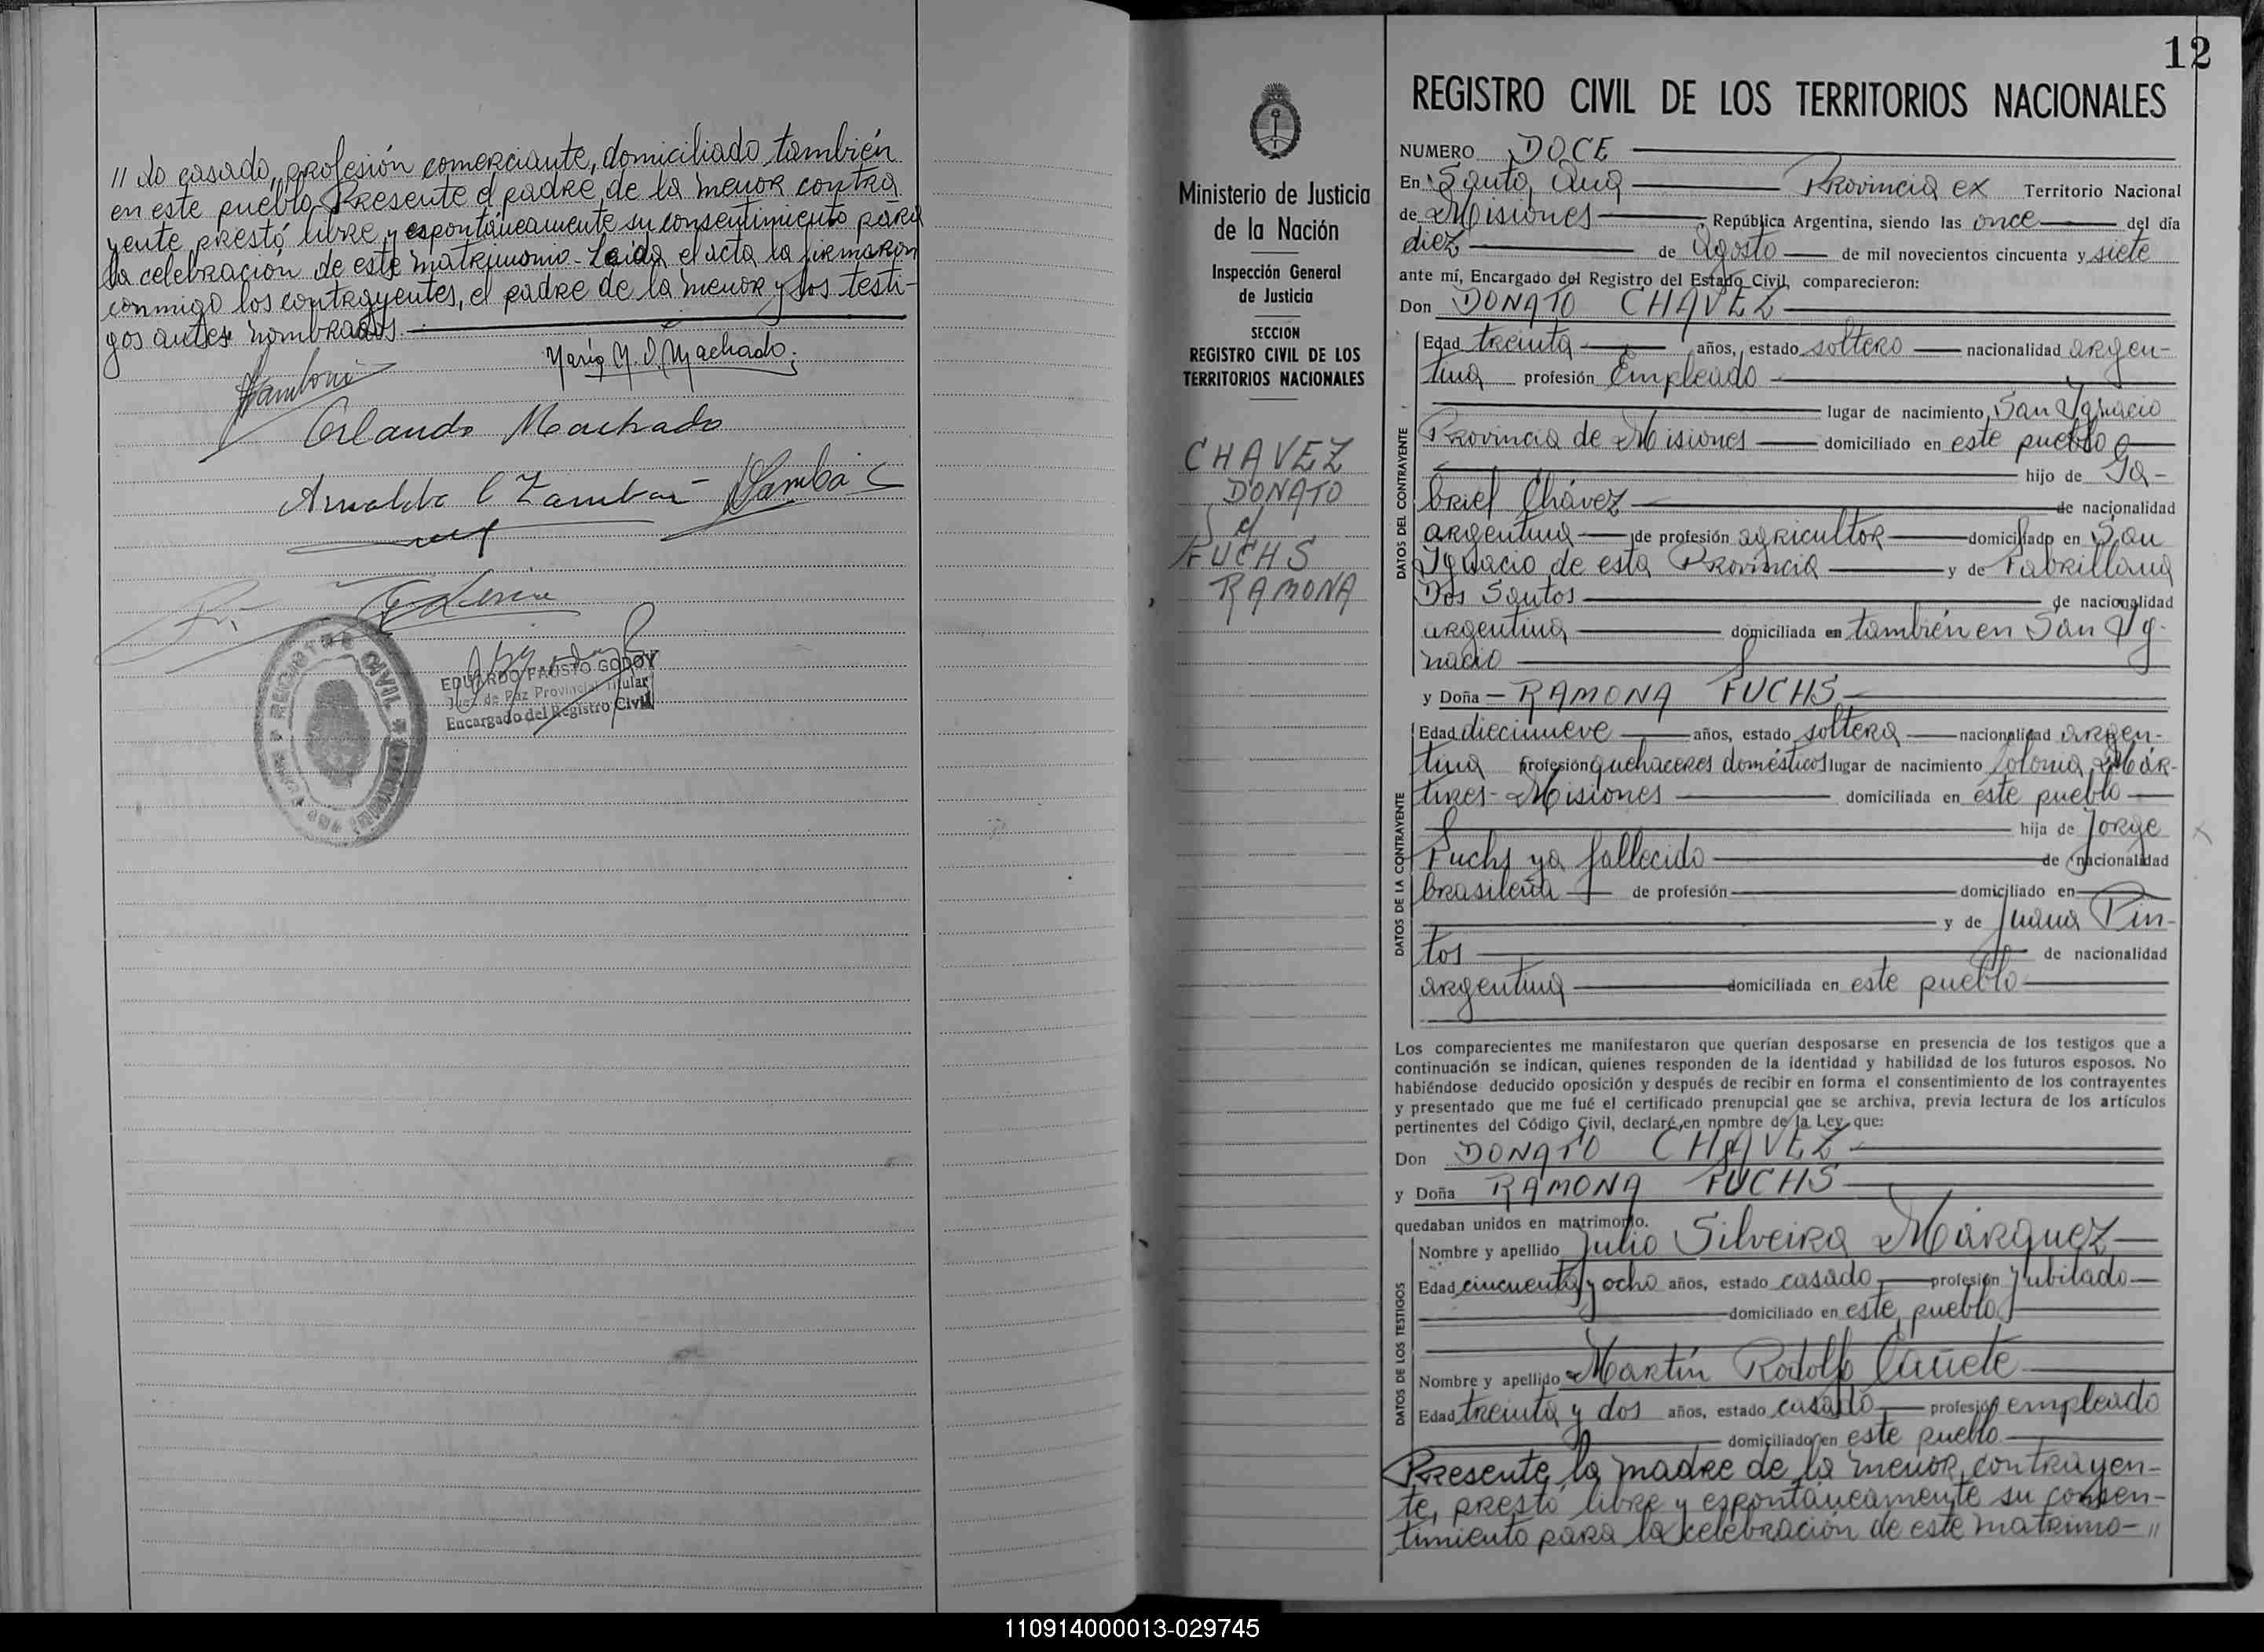 // do casado, profesión comerciante, domiciliado también
en este pueblo. Presente el padre de la menor contra
yente prestó libre y espontáneamente su consentimiento para
la celebración de este matrimonio. Leída el acta la firmaron
conmigo los contrayentes, el padre de la menor y los testi-
gos antes nombrados.
María M. D. Machado.
Orlando Machado
Arnaldo
EDUARDO FAUSTO GODOY
Juez de Paz Provincial Titular
Encargado del Registro Civil
REGISTRO CIVIL
12
Ministerio de Justicia
de la Nación
Inspección General
de Justicia
SECCION
REGISTRO CIVIL DE LOS
TERRITORIOS NACIONALES
CHAVEZ
DONATO
y
FUCHS
RAMONA
REGISTRO CIVIL DE LOS TERRITORIOS NACIONALES
NUMERO DOCE
En Santa Ana Provincia ex Territorio Nacional
de Misiones República Argentina, siendo las once del día
diez de Agosto de mil novecientos cincuenta y siete
ante mí, Encargado del Registro del Estado Civil, comparecieron:
Don DONATO CHAVEZ
DATOS DEL CONTRAYENTE
Edad treinta años, estado soltero nacionalidad argen-
tina profesión Empleado
lugar de nacimiento San Ygnacio
Provincia de Misiones domiciliado en este pueblo
hijo de Ga-
briel Chávez de nacionalidad
argentina de profesión agricultor domiciliado en San
Ygnacio de esta Provincia y de Fabrillana
Dos Santos de nacionalidad
argentina domiciliada en también en San Yg-
nacio
y Doña RAMONA FUCHS
DATOS DE LA CONTRAYENTE
Edad diecinueve años, estado soltera nacionalidad argen-
tina profesión quehaceres domésticos lugar de nacimiento Colonia Már-
tires - Misiones domiciliada en este pueblo
hija de Jorge
Fuchs ya fallecido de nacionalidad
brasileña de profesión domiciliado en
y de Juana Pin-
tos de nacionalidad
argentina domiciliada en este pueblo
Los comparecientes me manifestaron que querían desposarse en presencia de los testigos que a
continuación se indican, quienes responden de la identidad y habilidad de los futuros esposos. No
habiéndose deducido oposición y después de recibir en forma el consentimiento de los contrayentes
y presentado que me fué el certificado prenupcial que se archiva, previa lectura de los artículos
pertinentes del Código Civil, declaré en nombre de la Ley que:
Don DONATO CHAVEZ
y Doña RAMONA FUCHS
quedaban unidos en matrimonio.
DATOS DE LOS TESTIGOS
Nombre y apellido Julio Silveira Márquez
Edad cincuenta y ocho años, estado casado profesión jubilado
domiciliado en este pueblo
Nombre y apellido Martín Rodolfo Cañete
Edad treinta y dos años, estado casado profesión empleado
domiciliado en este pueblo
Presente la madre de la menor contrayen-
te, prestó libre y espontáneamente su consen-
timiento para la celebración de este matrimo- //
110914000013-029745